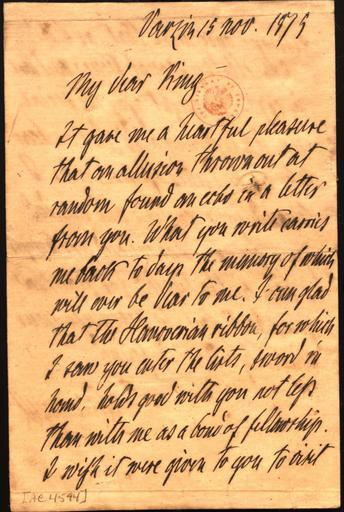 Varzin 15 nov. 1875
My dear King
It gave me a heartful pleasure
that an allusion thrown out at
random found an echo in a letter
from you. What you write carries
me back to days the memory of which
will ever be dear to me. I am glad
that the Hanoverian ribbon, for which
I saw you enter the lists, sword in
hand, holds good with you not less
than with me as a bond of fellowship.
I wish it were given to you to visit
[AC. 4544]